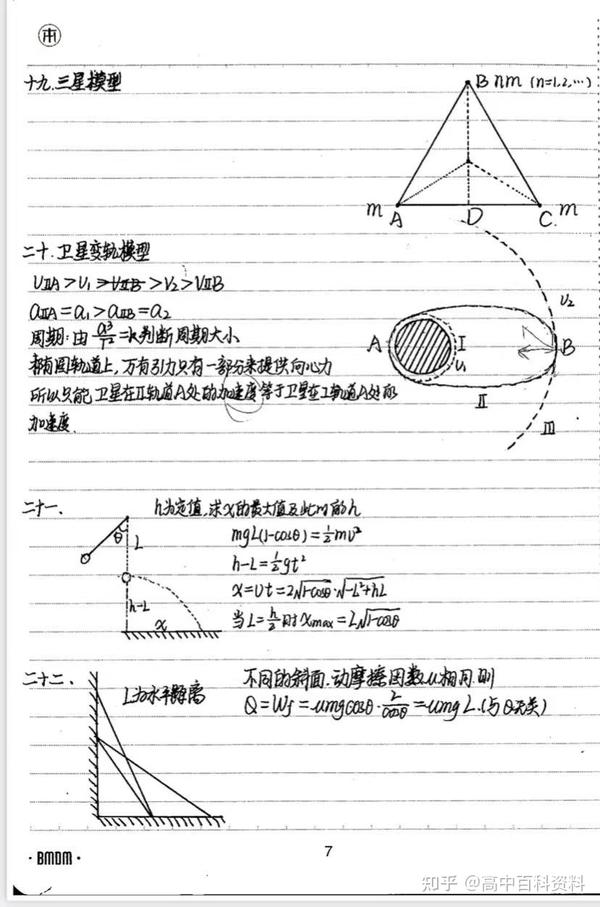 十九.三星模型
B nm (n=1,2,…)
m A D C m
二十.卫星变轨模型
vⅡA>v₁>vⅡB>v₂>vⅡB
aⅡA=a₁>aⅡB=a₂
周期:由a³/T²=k判断周期大小
椭圆轨道上,万有引力只有一部分来提供向心力
所以只能卫星在Ⅱ轨道A处的加速度等于卫星在Ⅰ轨道A处的
加速度.
A Ⅰ v₁ Ⅱ B v₂ Ⅲ
二十一、
h为定值,求x的最大值及此时的h
mgL(1-cosθ)=½mv²
h-L=½gt²
x=vt=2√1-cosθ·√-L²+hL
当L=h/2时xmax=2L√1-cosθ
θ L h-L x
二十二、
L为水平距离
不同的斜面,动摩擦因数u相同,则
Q=Wf=umgcosθ·L/cosθ=umgL.(与θ无关)
·BMDM·
7
知乎 @高中百科资料